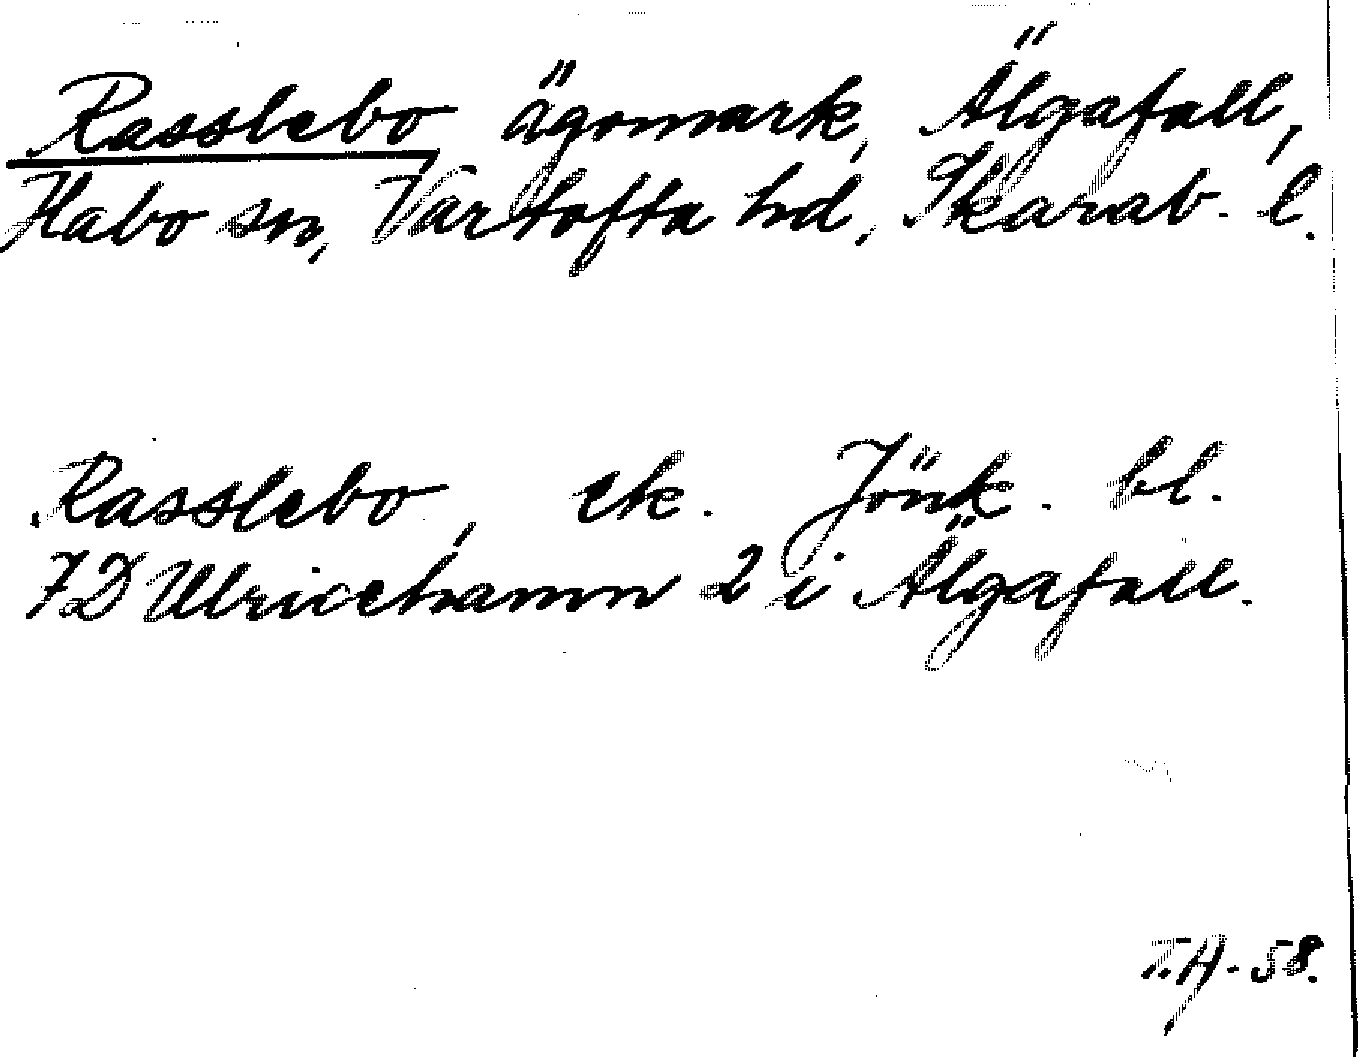 Rasslebo ägomark, Älgafall,
Habo sn, Vartofta hd, Skarab. l.
Rasslebo, ek. Jönk. bl.
7D Ulricehamn 2 i Älgafall.
T.A. -58.